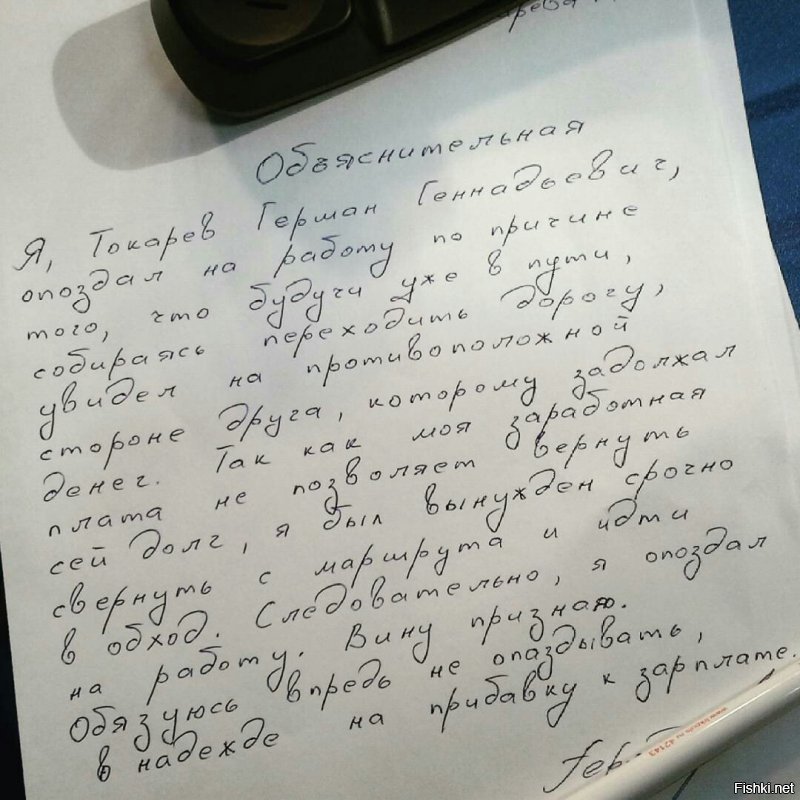 Объяснительная
Я, Токарев Герман Геннадьевич,
опоздал на работу по причине
того, что будучи уже в пути,
собираясь переходить дорогу,
увидел на противоположной
стороне друга, которому задолжал
денег. Так как моя заработная
плата не позволяет вернуть
сей долг, я был вынужден срочно
свернуть с маршрута и идти
в обход. Следовательно, я опоздал
на работу. Вину признаю.
Обязуюсь впредь не опаздывать,
в надежде на прибавку к зарплате.
Fishki.net